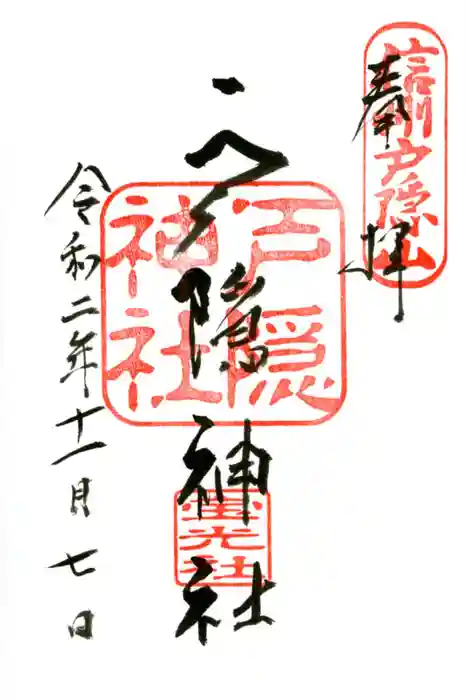 奉拝
信州戸隠山
戸隠神社
戸隠
神社
宝光社
令和二年十一月七日